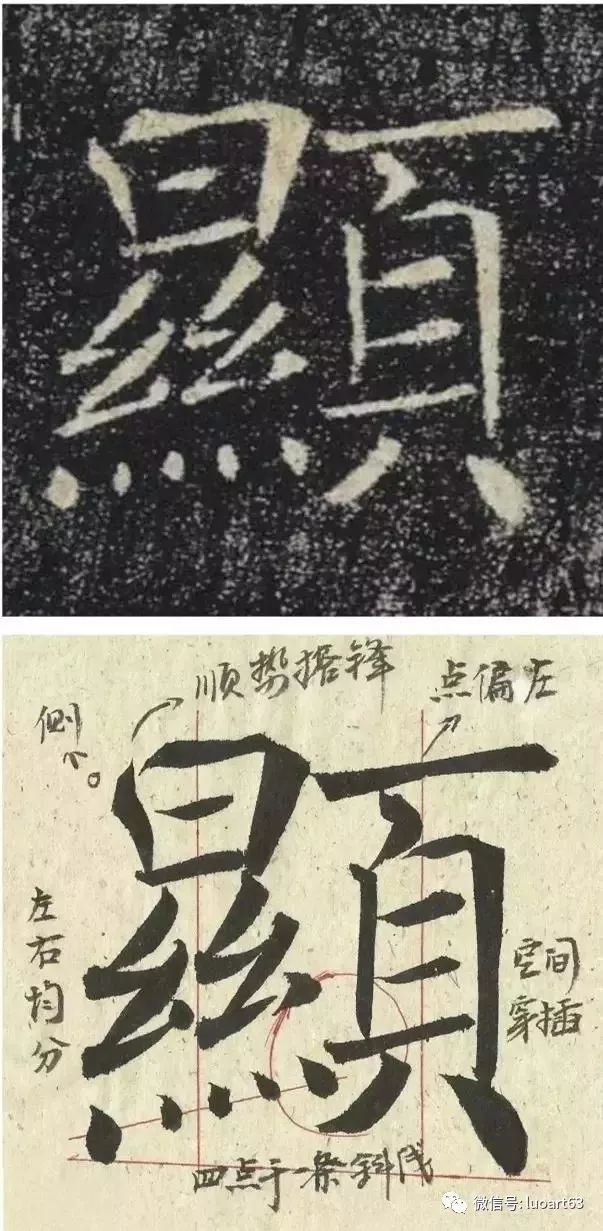 顯
顺势搭锋
点偏左
侧下。
顯
左右均分
空间
穿插
四点于一条斜线
微信号: luoart63